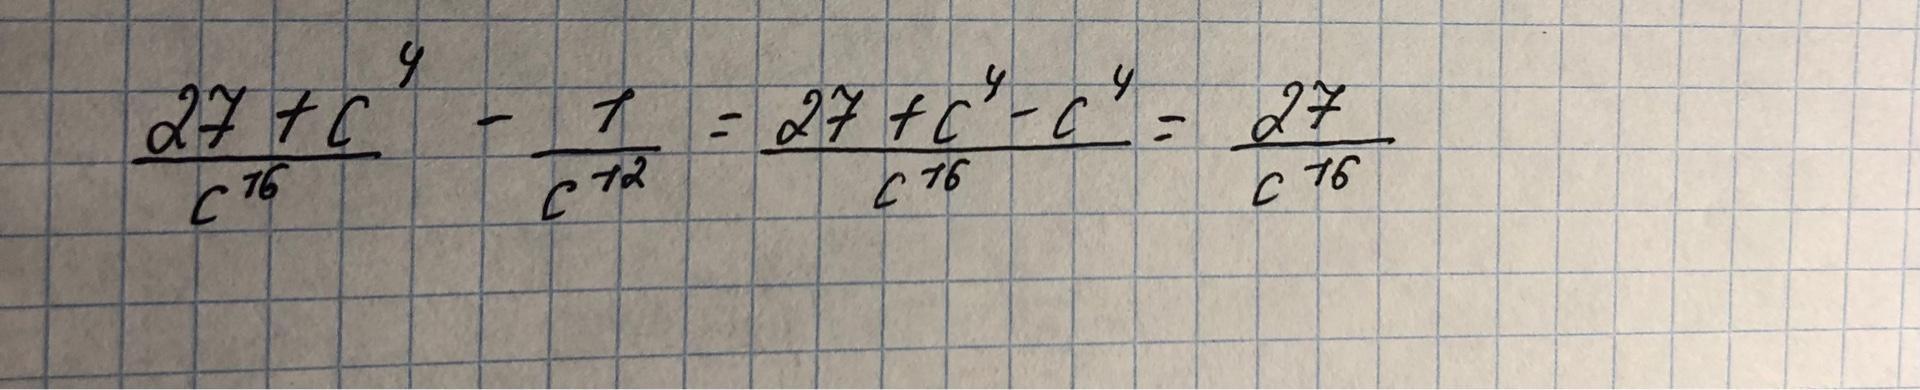 (27 + c^4)/c^16 - 1/c^12 = (27 + c^4 - c^4)/c^16 = 27/c^16